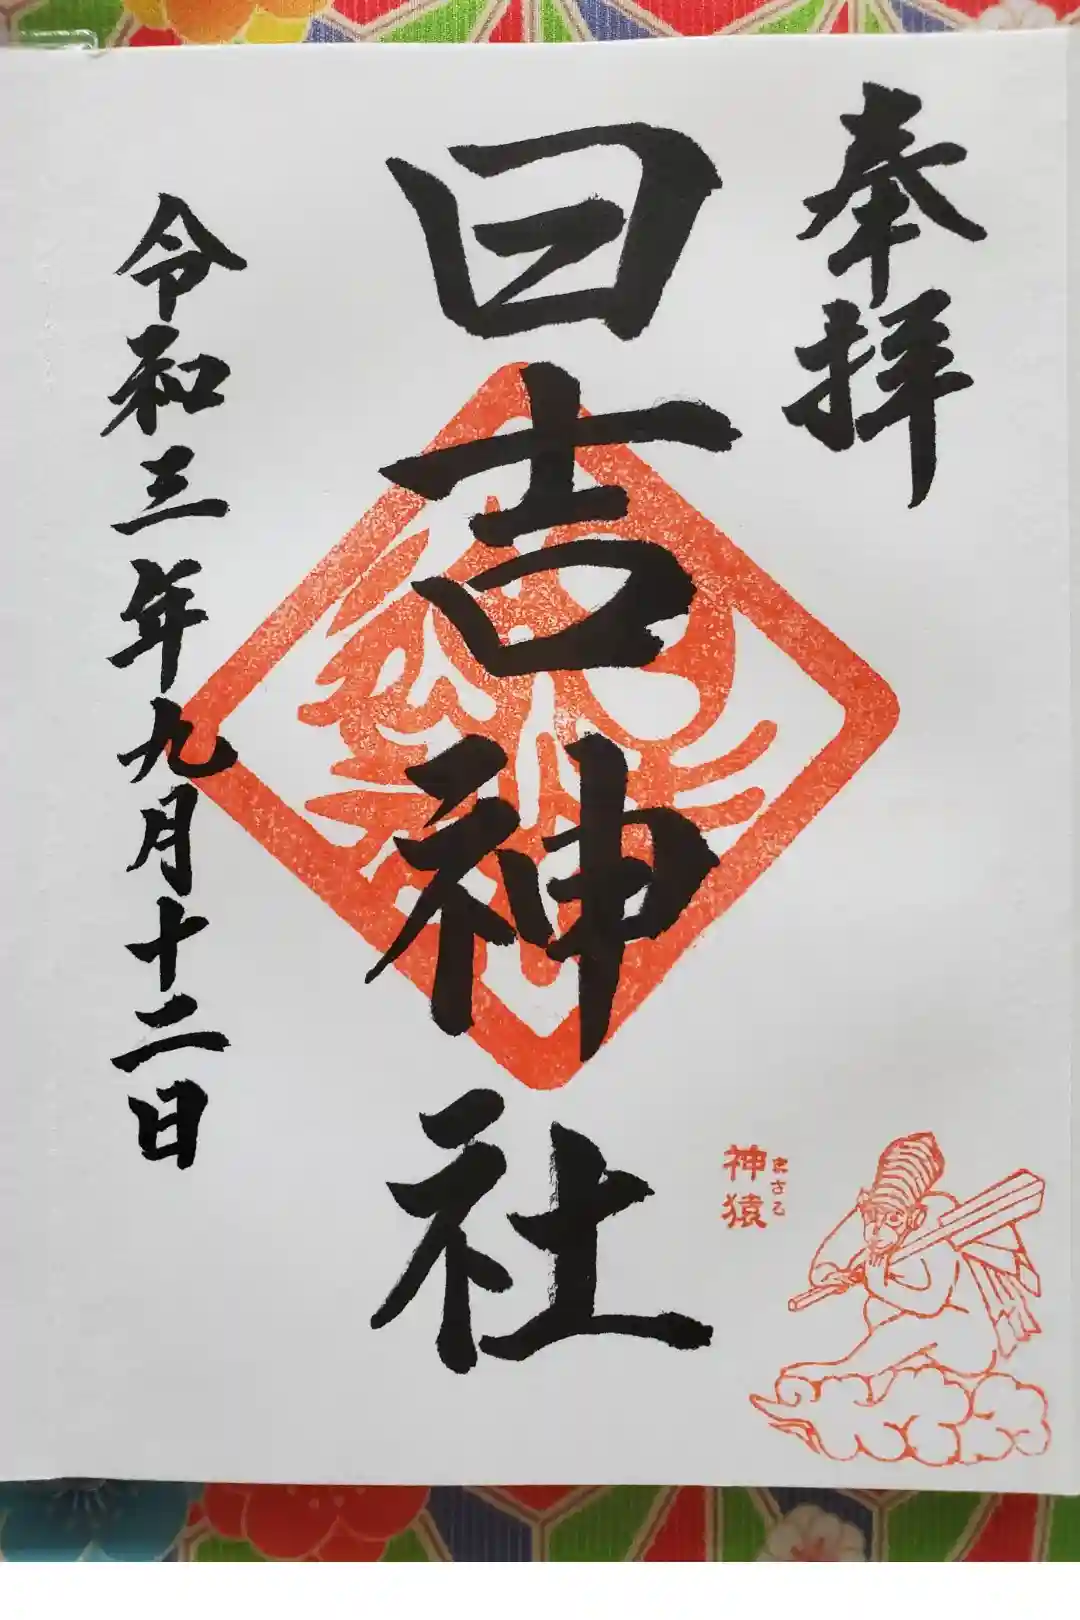 奉拝
日吉神社
令和三年九月十二日
神猿
まさる